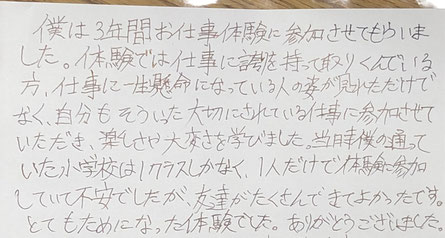 僕は3年間お仕事体験に参加させてもらいま
した。体験では仕事に誇を持って取りくんでいる
方、仕事に一生懸命になっている人の姿が見れただけで
なく、自分もそういった大切にされている仕事に参加させて
いただき、楽しさや大変さを学びました。当時僕の通って
いた小学校は1クラスしかなく、1人だけで体験に参加
していて不安でしたが、友達がたくさんできてよかったです。
とてもためになった体験でした。ありがとうございました。